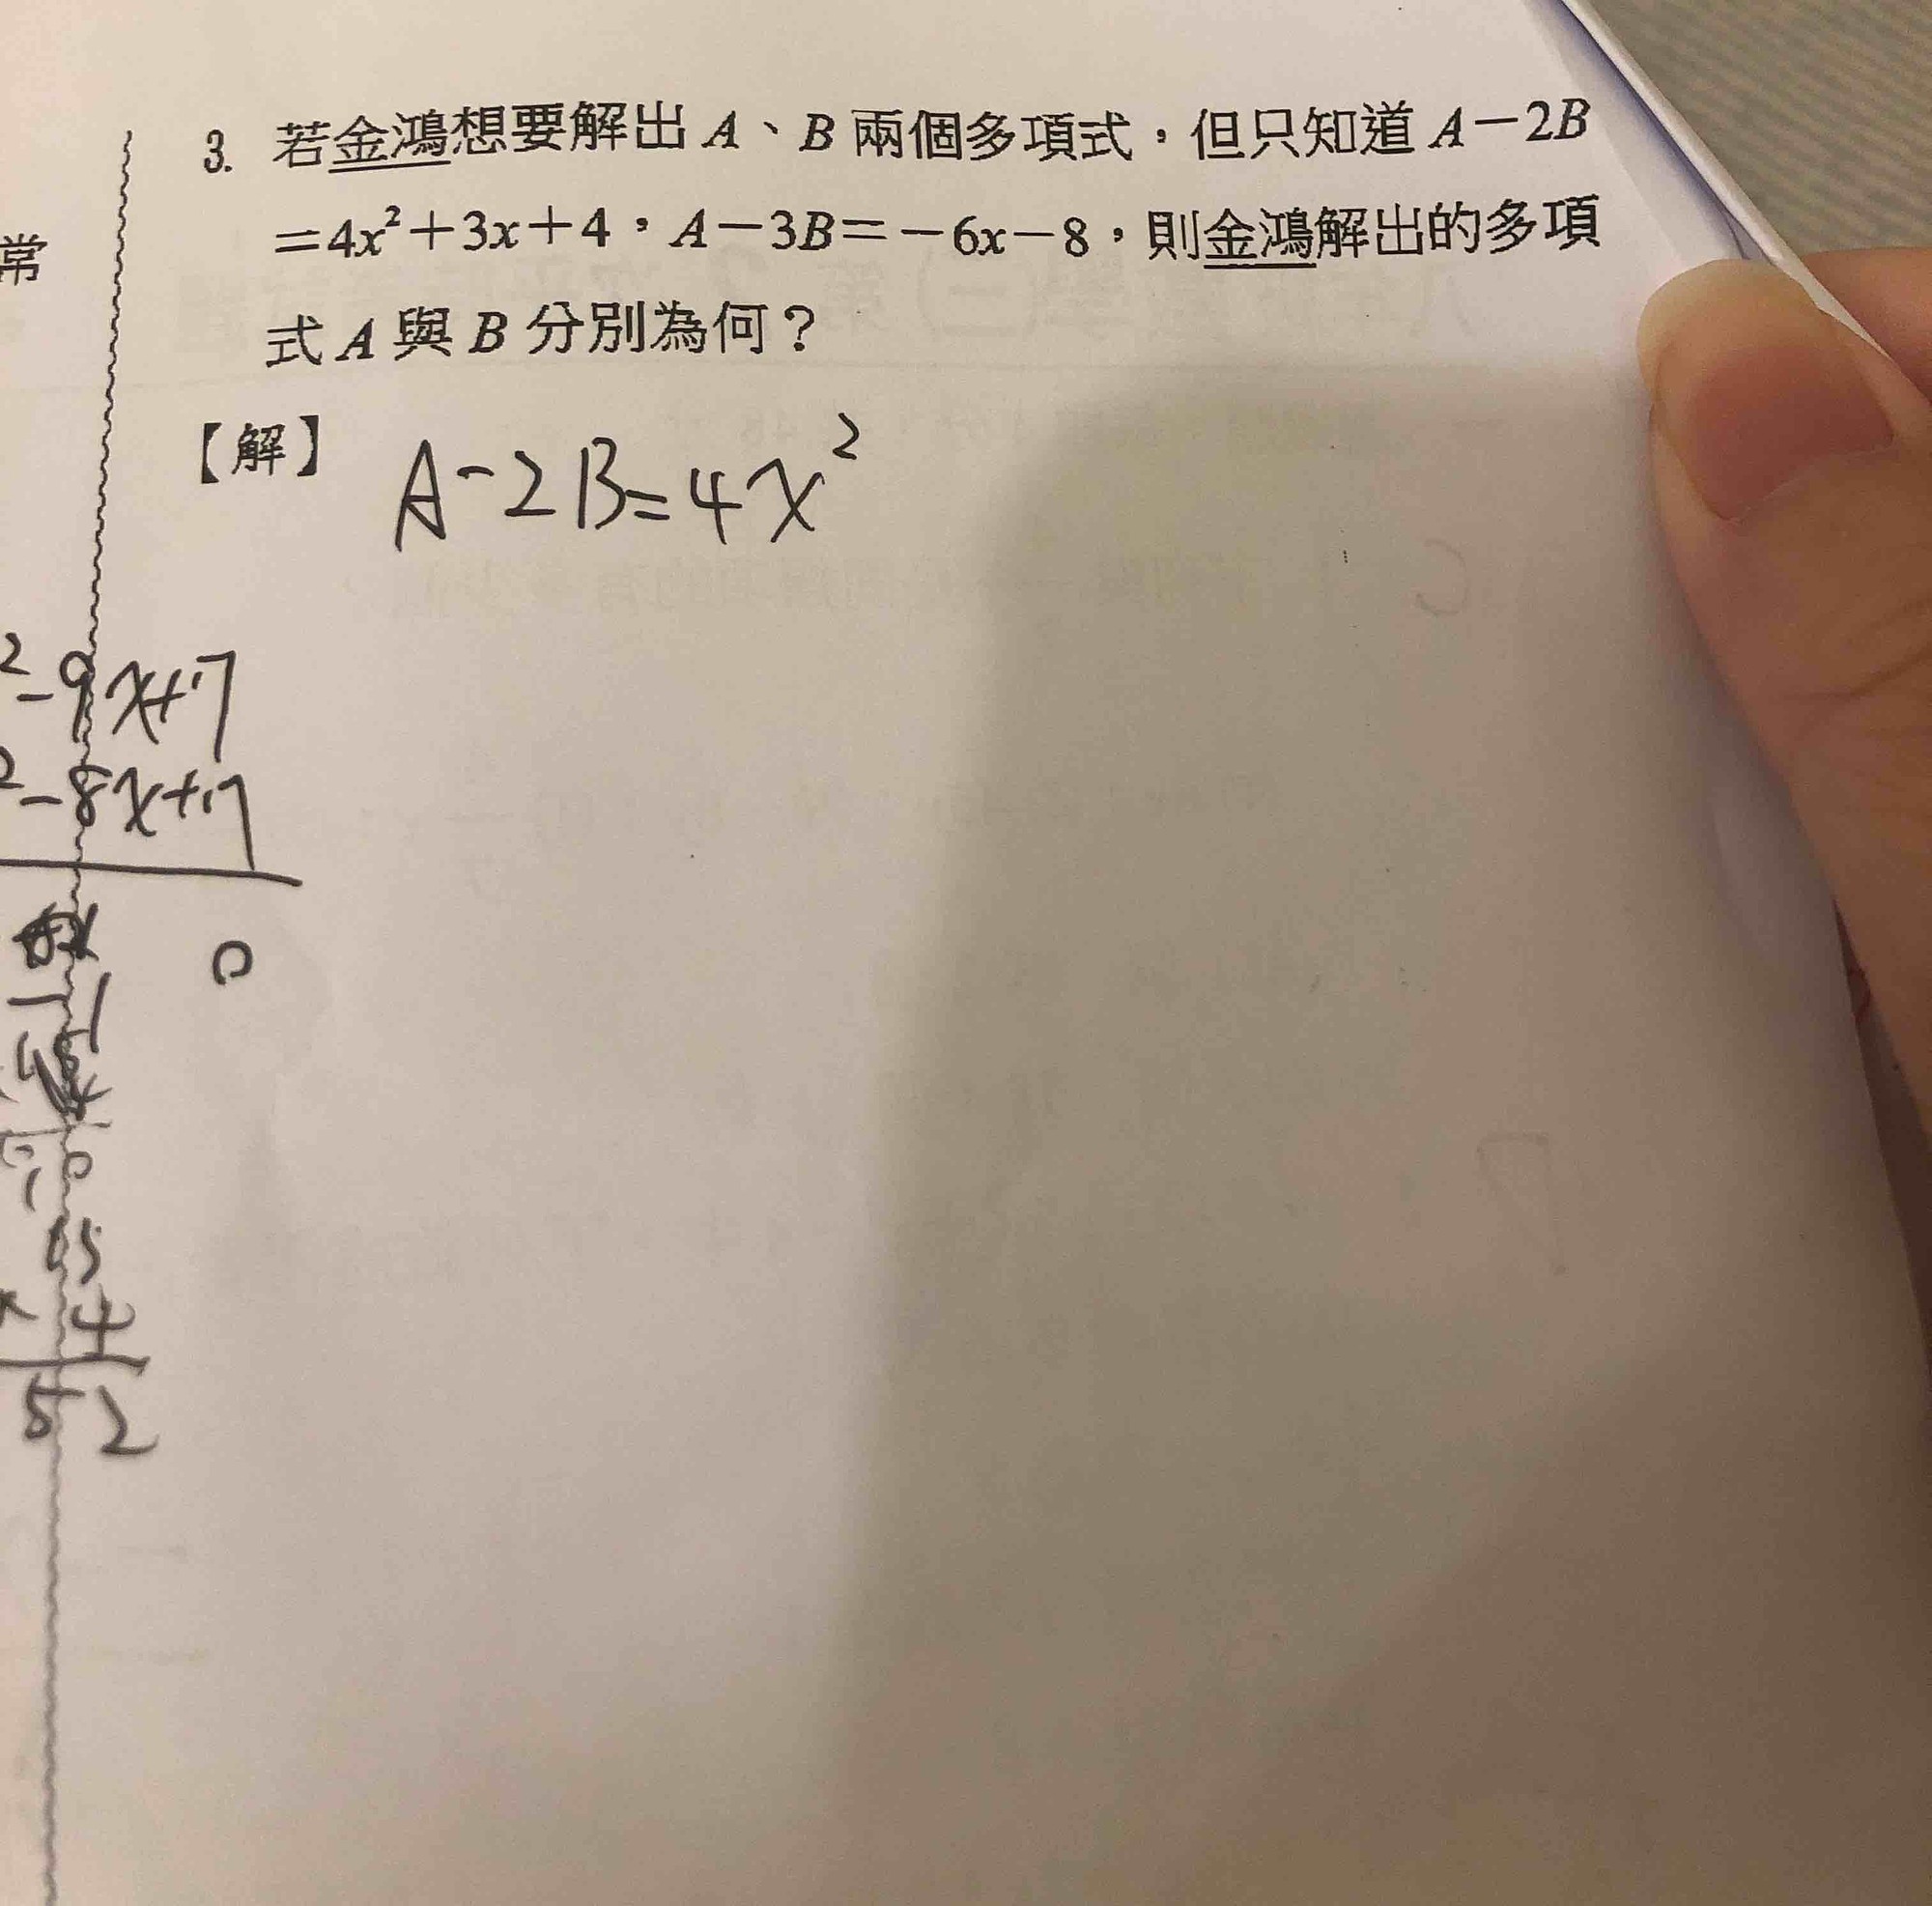 3. 若金鴻想要解出 A、B 兩個多項式，但只知道 A－2B
＝4x²＋3x＋4，A－3B＝－6x－8，則金鴻解出的多項
式 A 與 B 分別為何？
【解】 A-2B=4x²
常
²-9x+7
²-8x+7
0
-1
15
× 4
52